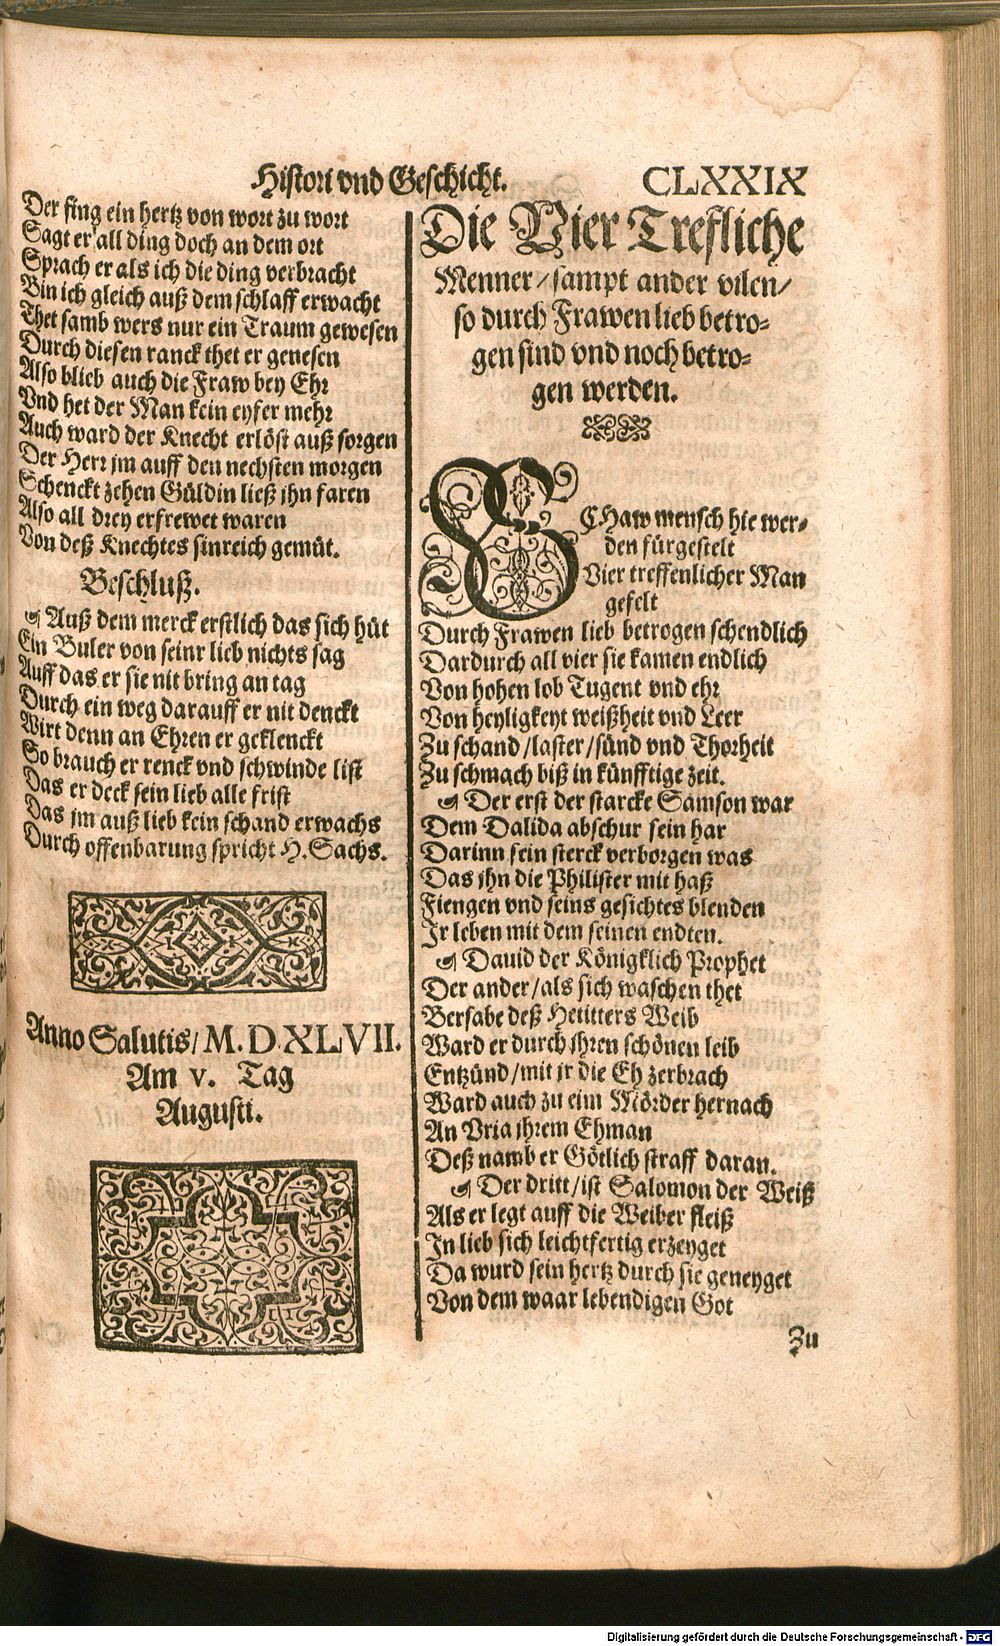 Histori vnd Geschicht.
CLXXIX
Der fing ein hertz von wort zu wort
Sagt er all ding doch an dem ort
Sprach er als ich die ding verbracht
Bin ich gleich auß dem schlaff erwacht
Thet samb wers nur ein Traum gewesen
Durch diesen ranck thet er genesen
Also blieb auch die Fraw bey Ehr
Vnd het der Man kein eyfer mehr
Auch ward der Knecht erlöst auß sorgen
Der Herr jm auff den nechsten morgen
Schenckt zehen Güldin ließ jhn faren
Also all drey erfrewet waren
Von deß Knechtes sinreich gemüt.
Beschluß.
Auß dem merck erstlich das sich hüt
Ein Buler von seinr lieb nichts sag
Auff das er sie nit bring an tag
Durch ein weg darauff er nit denckt
Wirt denn an Ehren er geklenckt
So brauch er renck vnd schwinde list
Das er deck sein lieb alle frist
Das jm auß lieb kein schand erwachs
Durch offenbarung spricht H. Sachs.
Anno Salutis/ M. D. XLVII.
Am v. Tag
Augusti.
Die Vier Trefliche
Menner/ sampt ander vilen/
so durch Frawen lieb betro⸗
gen sind vnd noch betro⸗
gen werden.
SChaw mensch hie wer⸗
den fürgestelt
Vier treffenlicher Man
gefelt
Durch Frawen lieb betrogen schendlich
Dardurch all vier sie kamen endlich
Von hohen lob Tugent vnd ehr
Von heyligkeyt weißheit vnd Leer
Zu schand/ laster/ sünd vnd Thorheit
Zu schmach biß in künfftige zeit.
Der erst der starcke Samson war
Dem Dalida abschur sein har
Darinn sein sterck verborgen was
Das jhn die Philister mit haß
Fiengen vnd seins gesichtes blenden
Ir leben mit dem seinen endten.
Dauid der Königklich Prophet
Der ander/ als sich waschen thet
Bersabe deß Hetitters Weib
Ward er durch jhren schönen leib
Entzünd/ mit jr die Eh zerbrach
Ward auch zu eim Mörder hernach
An Vria jhrem Ehman
Deß namb er Götlich straff daran.
Der dritt/ ist Salomon der Weiß
Als er legt auff die Weiber fleiß
In lieb sich leichtfertig erzeyget
Da wurd sein hertz durch sie geneyget
Von dem waar lebendigen Got
Zu
Digitalisierung gefördert durch die Deutsche Forschungsgemeinschaft - DFG